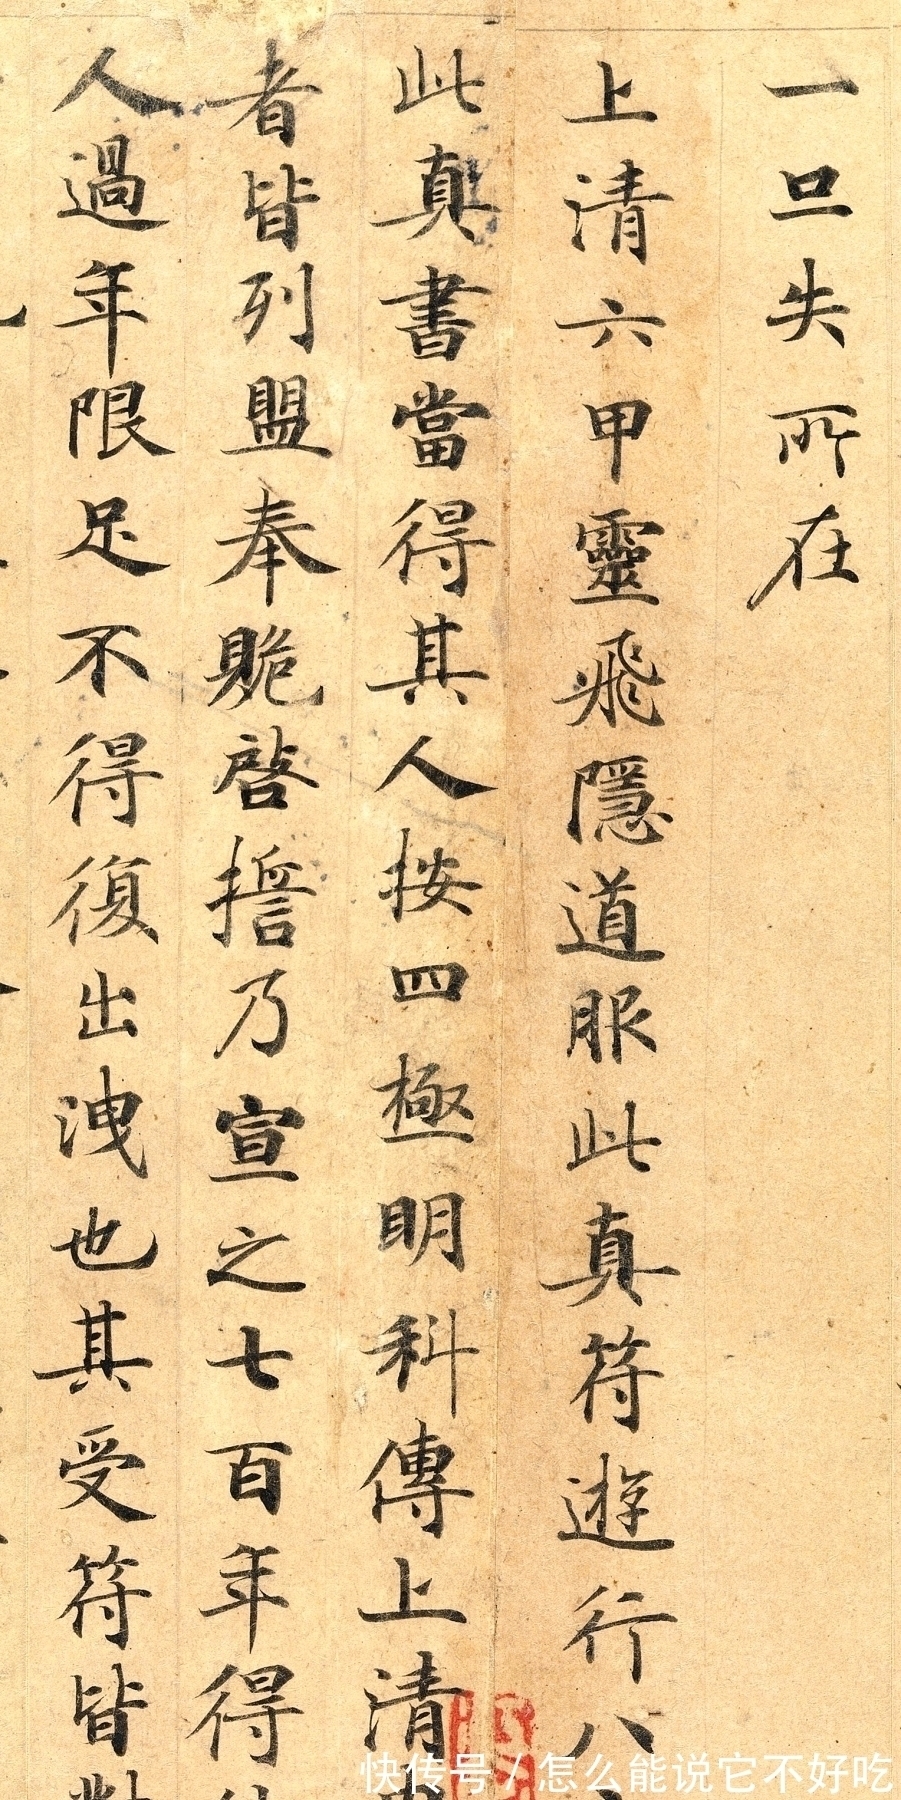 一旦失所在
上清六甲靈飛隱道服此真符遊行八
此真書當得其人按四極明科傳上清
者皆列盟奉贶啓擔乃宣之七百年得
人過年限足不得復出洩也其受符皆對
快传号/怎么能说它不好吃